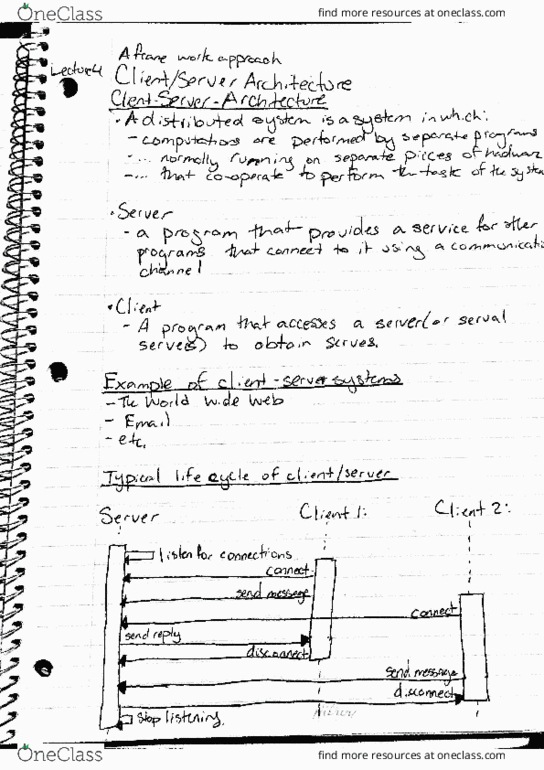 OneClass find more resources at oneclass.com
A frame work approach
Lecture 4
Client/Server Architecture
Client-Server-Architecture
· A distributed system is a system in which:
- computations are performed by separate programs
- ... normally running on separate pieces of hardware
- ... that co-operate to perform the task of the syste
· Server
- a program that provides a service for other
programs that connect to it using a communicatio
channel
· Client
- A program that accesses a server (or serval
servers) to obtain serves.
Example of client-server systems
- The World Wide Web
- Email
- etc.
Typical life cycle of client/server
Server Client 1: Client 2:
listen for connections
connect
send message
connect
send reply
disconnect
send message
disconnect
stop listening.
OneClass find more resources at oneclass.com